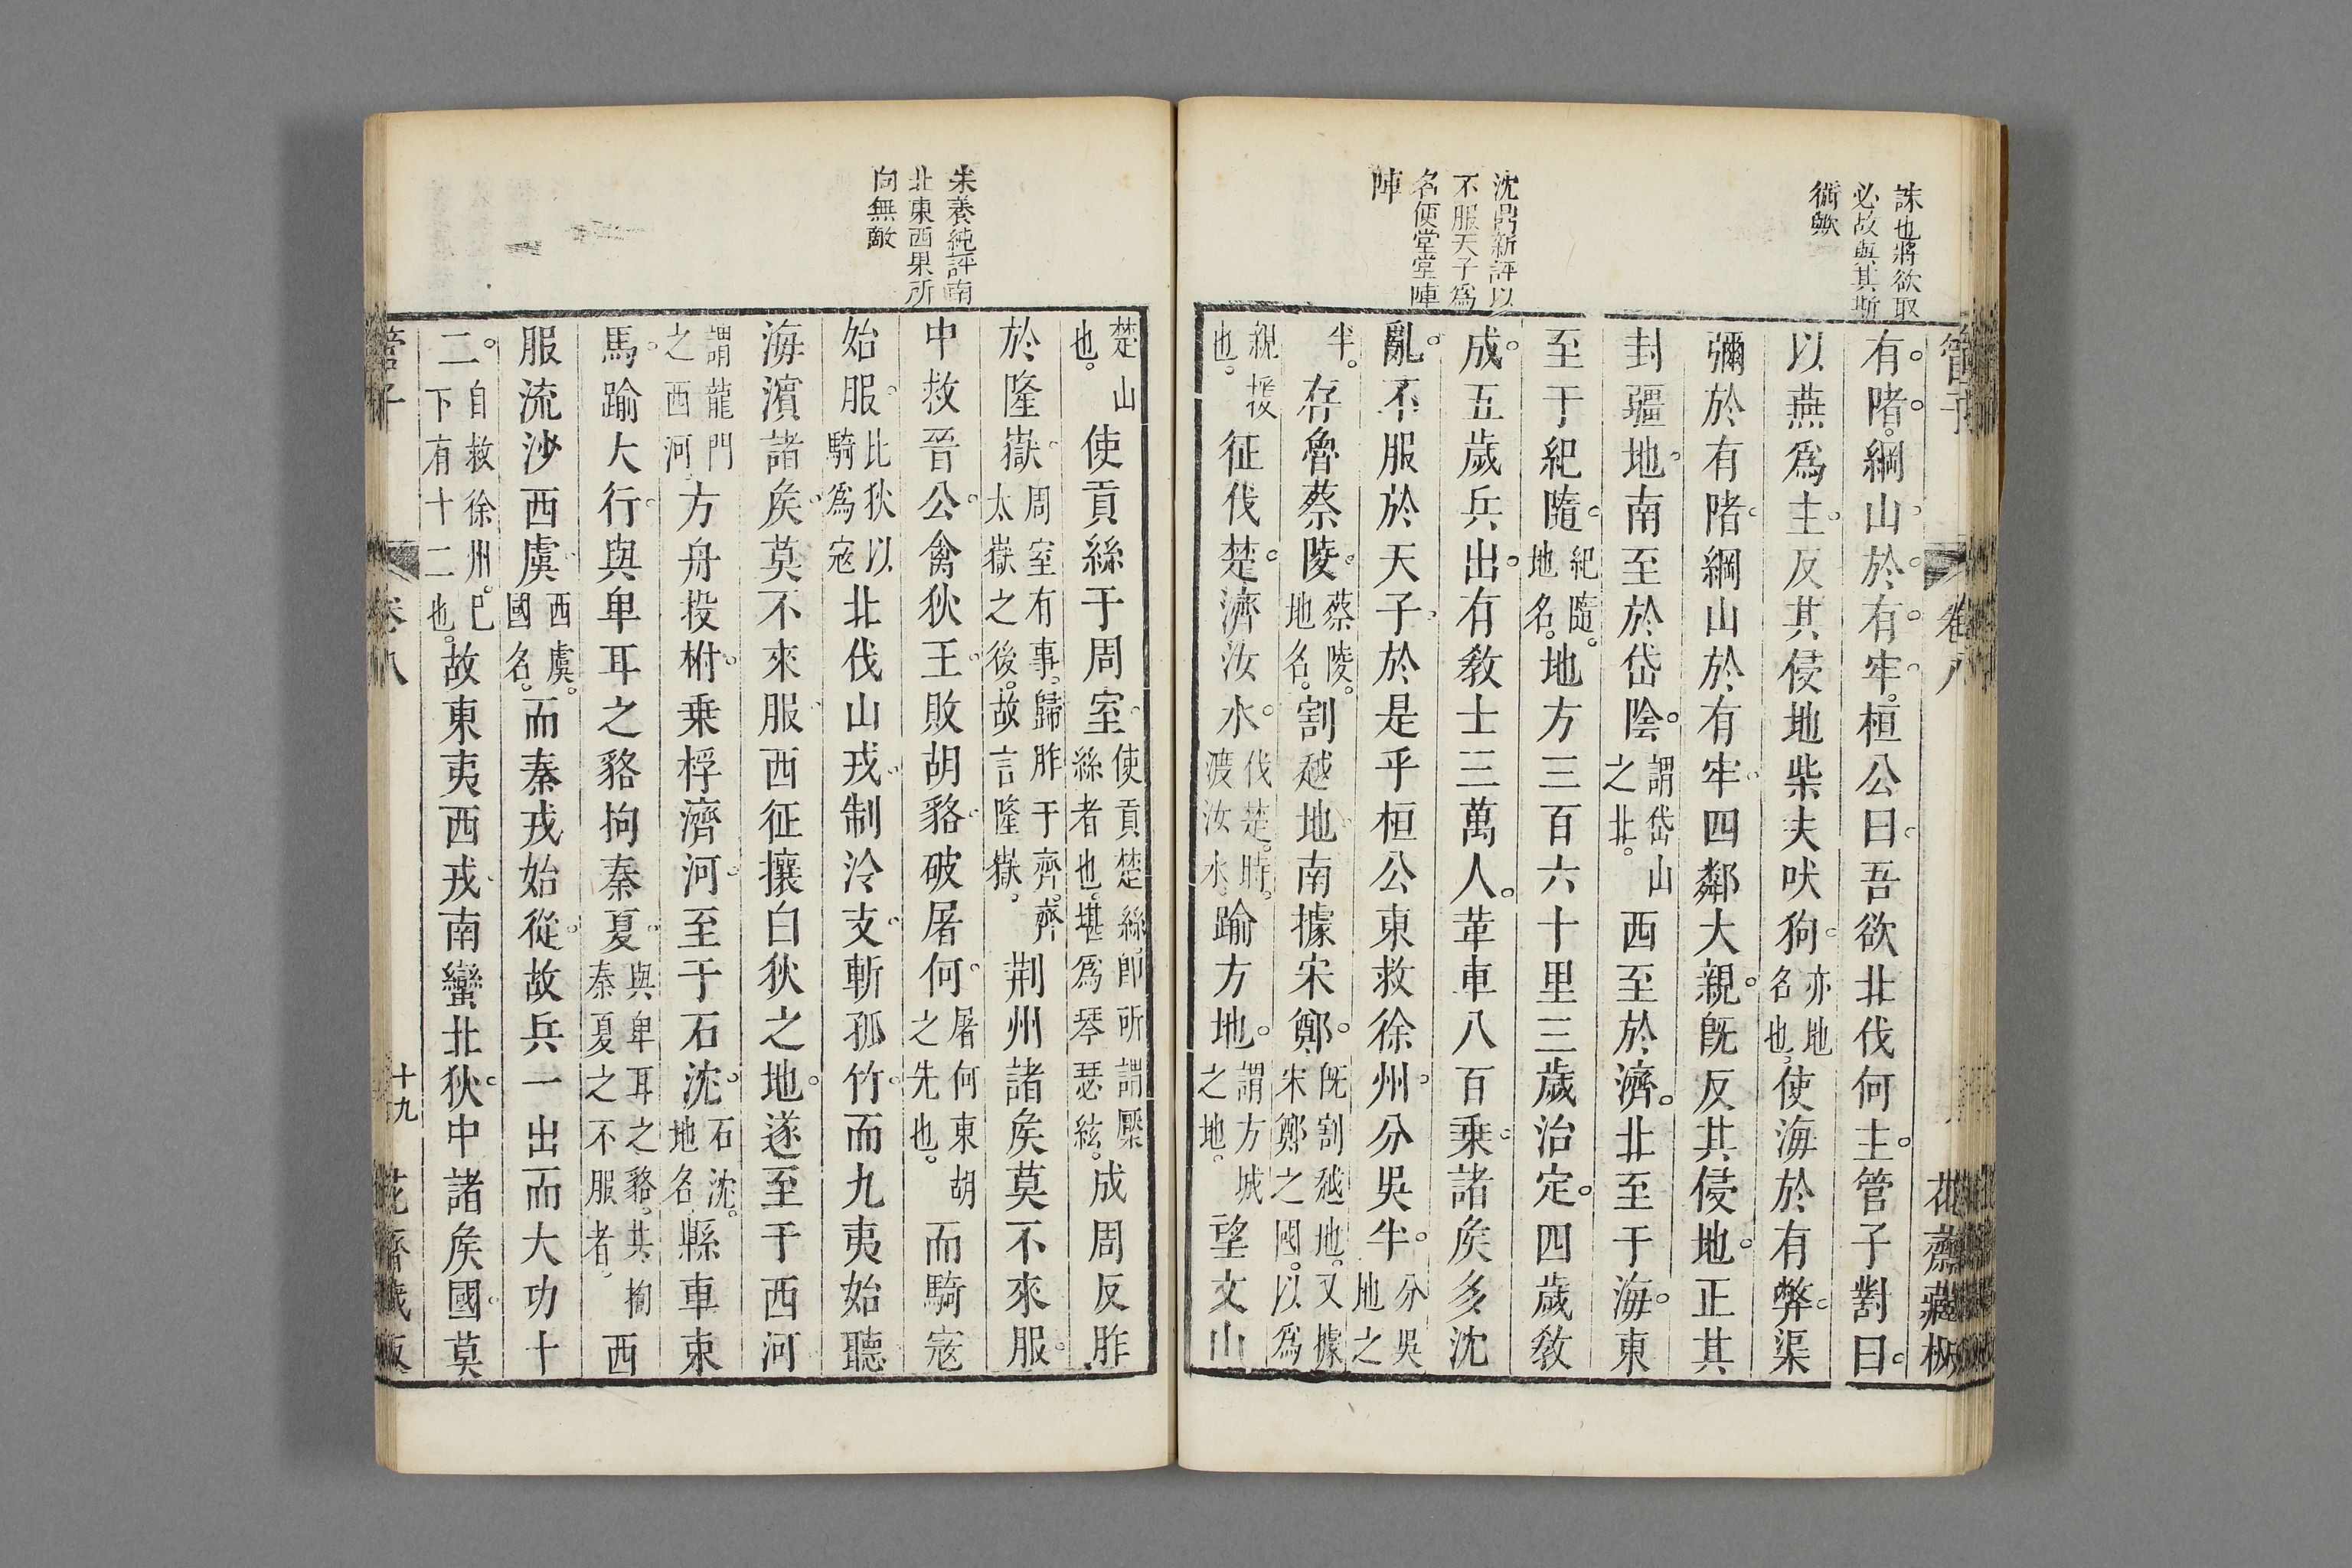 誅也將欲取
必故與其斯
術歟
沈鼎新評以
不服天子爲
名便堂堂陣
陣
管子 卷八 花齋藏板
有。啫。綱山於有牢。桓公曰吾欲北伐何主。管子對曰
以燕爲主。反其侵地柴夫吠狗。亦地名也。使海於有弊渠
彌於有陼綱山於有牢四鄰大親。旣反其侵地。正其
封疆地。南至於岱陰。謂岱山之北。西至於濟。北至于海。東
至于紀隨。紀隨。地名。地方三百六十里三歲治定。四歲教
成。五歲兵出。有教士三萬人。革車八百乗諸矦多沈
亂。不服於天子。於是乎桓公東救徐州。分吳半。分吳地之
半。存魯蔡陵。蔡陵。地名。割越地南據宋鄭。旣割越地。又據宋鄭之國。以爲
親援也。征伐楚。濟汝水。伐楚時。渡汝水。踰方地。謂方城之地。望文山
朱養純評南
北東西果所
向無敵
楚山也。使貢絲于周室。使貢楚絲卽所謂檿絲者也。堪爲琴瑟絃。成周反胙
於隆嶽。周室有事。歸胙于齊。齊太嶽之後。故言隆嶽。荆州諸矦莫不來服。
中救晉公。禽狄王。敗胡貉。破屠何。屠何東胡之先也。而騎寇
始服。比狄以騎爲寇北伐山戎。制泠支。斬孤竹。而九夷始聽
海濱諸矦。莫不來服。西征攘白狄之地。遂至于西河
謂龍門之西河。方舟投柎。乗桴濟河。至于石沈。石沈。地名。縣車束
馬。踰大行。與卑耳之貉拘秦夏。與卑耳之貉。共拘秦夏之不服者。西
服流沙西虞西虞。國名。而秦戎始從。故兵一出而大功十
二。自救徐州。巳下有十二也。故東夷西戎。南蠻北狄。中諸矦國。莫
管子 卷八 十九 花齋藏板